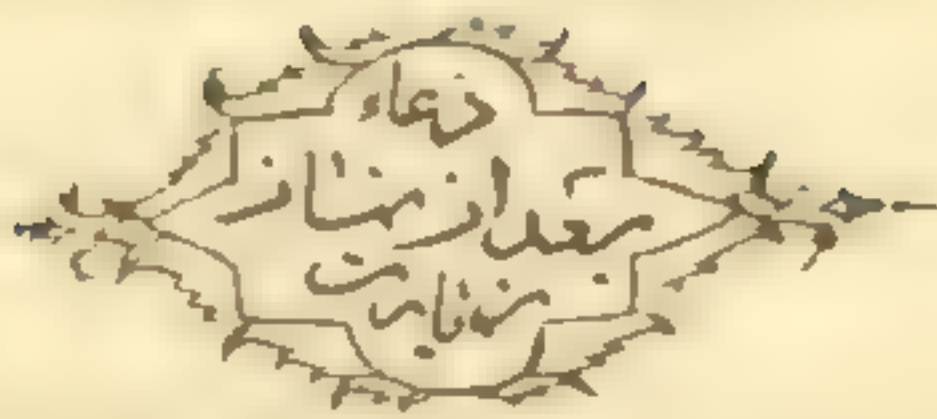 دعاء
بعد از نماز
زیارت